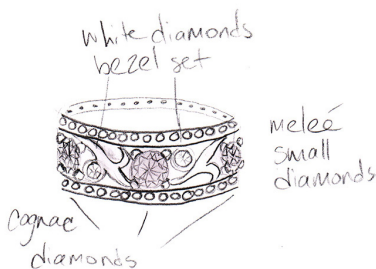 white diamonds
bezel set
meleé
small
diamonds
Cognac
diamonds